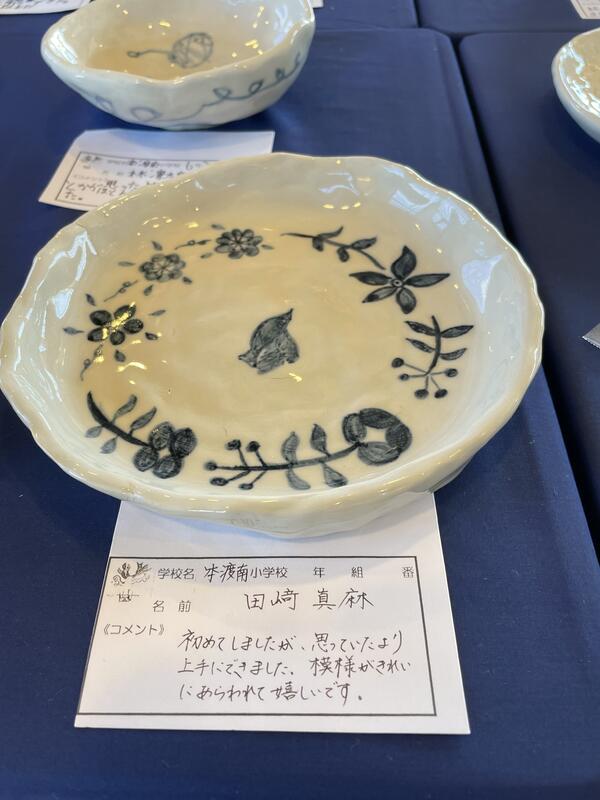 学校名 本渡南小学校 年 組 番
名前 田﨑 真麻
《コメント》
初めてしましたが、思っていたより
上手にできました。模様がきれい
にあらわれて嬉しいです。